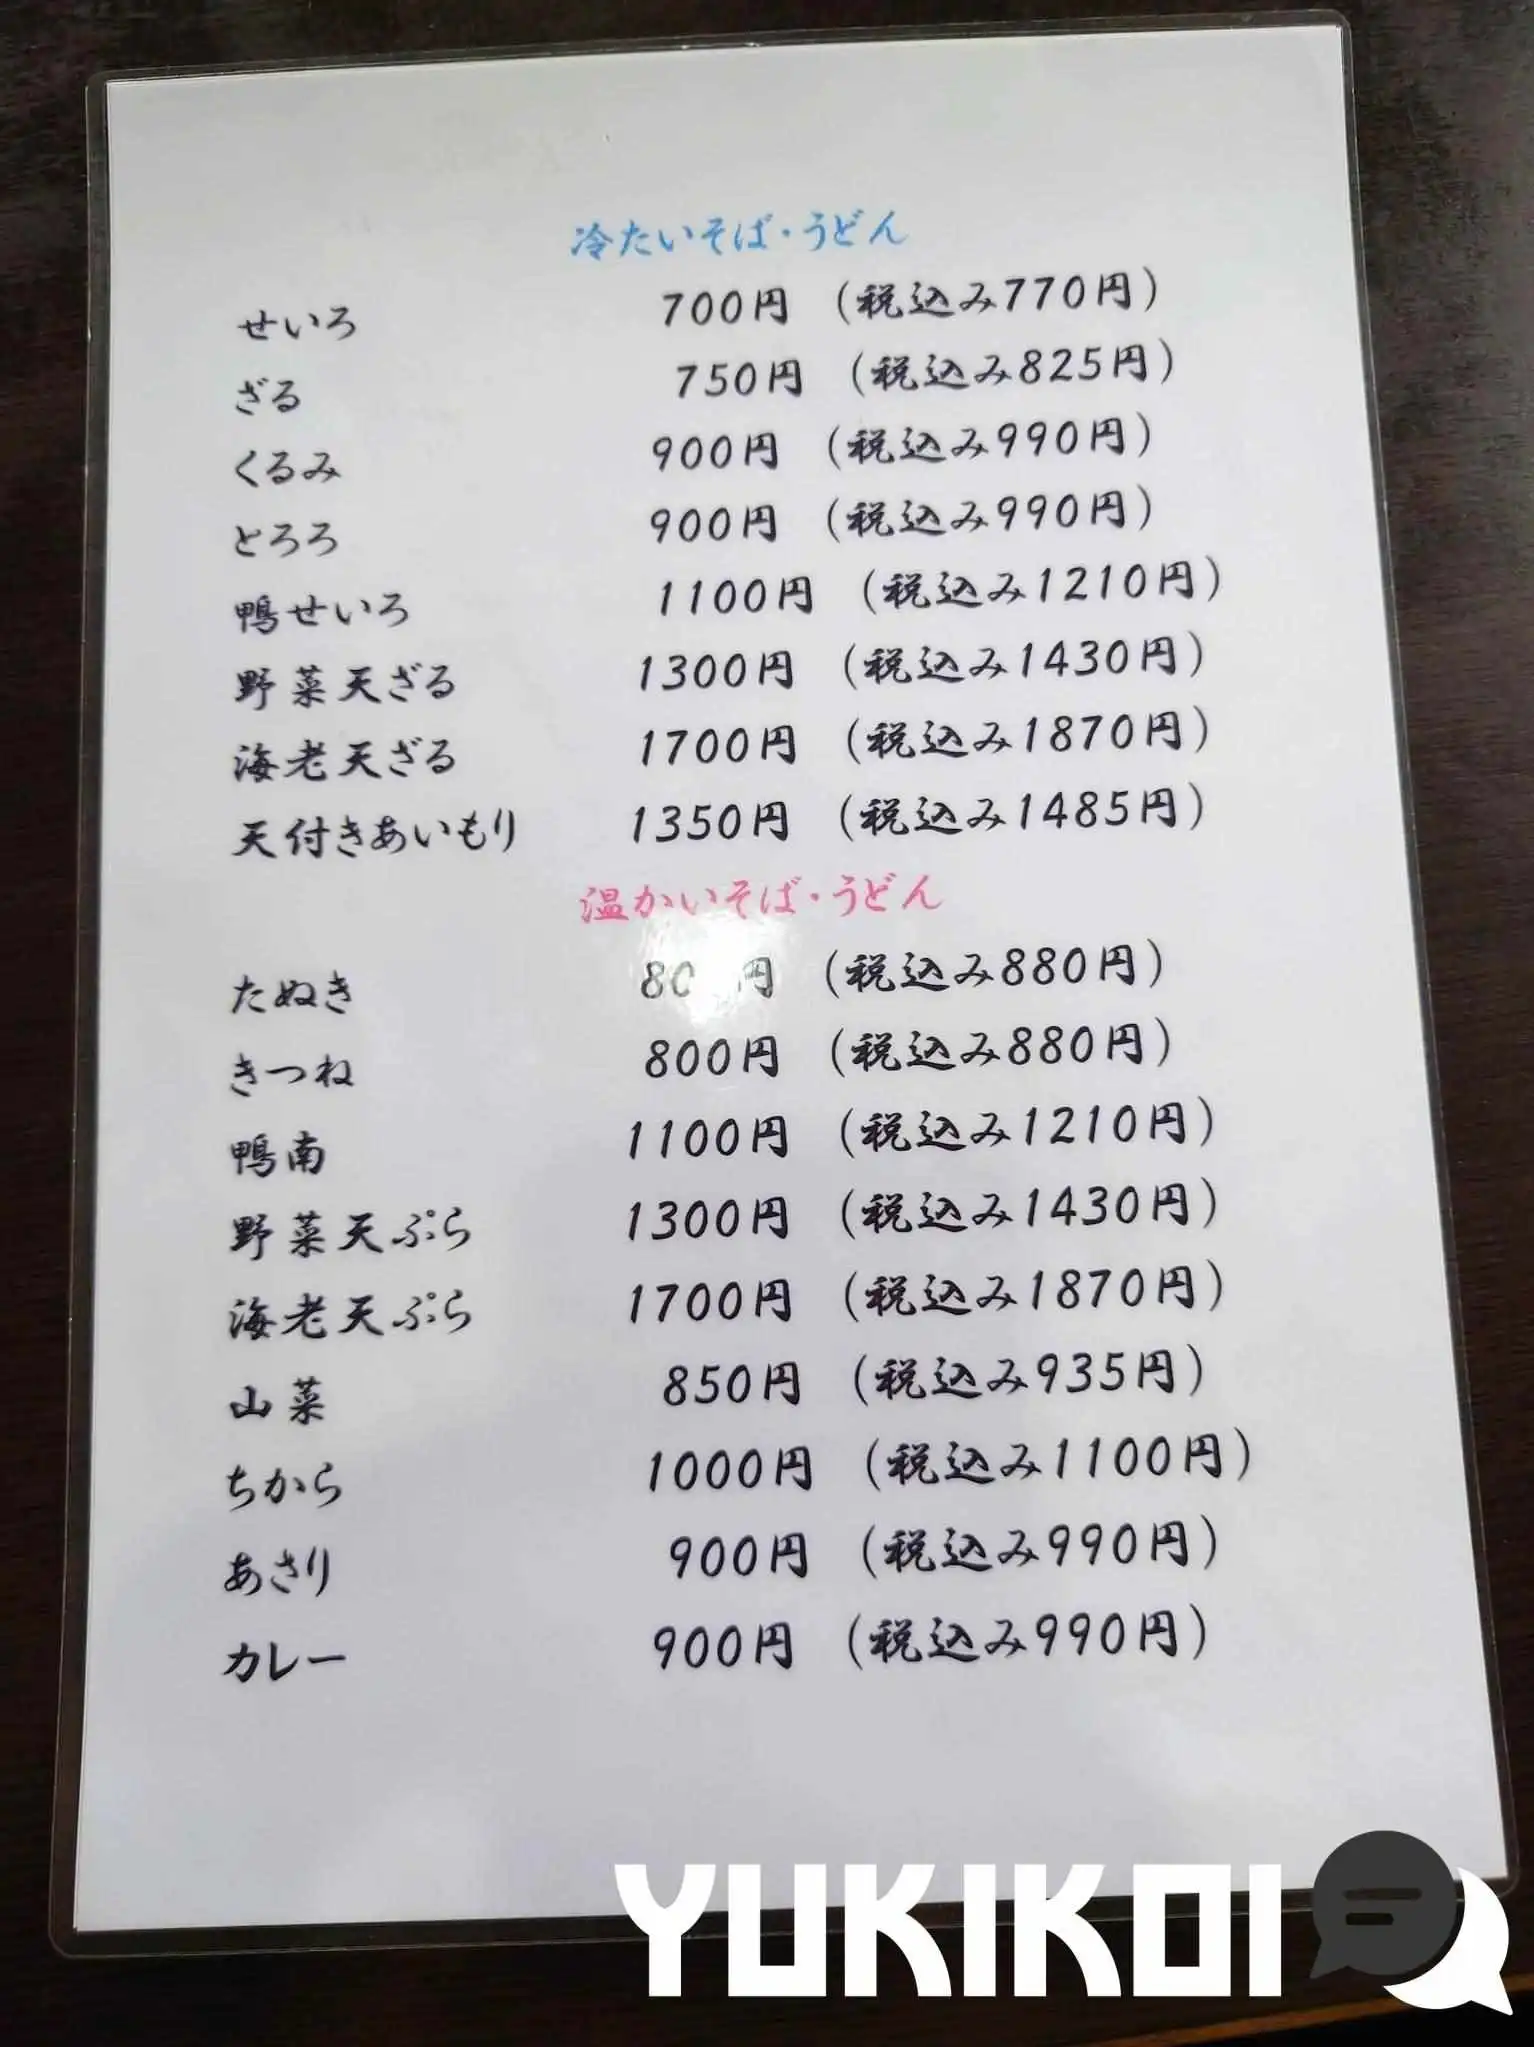 冷たいそば・うどん
せいろ 700円 (税込み770円)
ざる 750円 (税込み825円)
くるみ 900円 (税込み990円)
とろろ 900円 (税込み990円)
鴨せいろ 1100円 (税込み1210円)
野菜天ざる 1300円 (税込み1430円)
海老天ざる 1700円 (税込み1870円)
天付きあいもり 1350円 (税込み1485円)
温かいそば・うどん
たぬき (税込み880円)
きつね 800円 (税込み880円)
鴨南 1100円 (税込み1210円)
野菜天ぷら 1300円 (税込み1430円)
海老天ぷら 1700円 (税込み1870円)
山菜 850円 (税込み935円)
ちから 1000円 (税込み1100円)
あさり 900円 (税込み990円)
カレー 900円 (税込み990円)
YUKIKOI